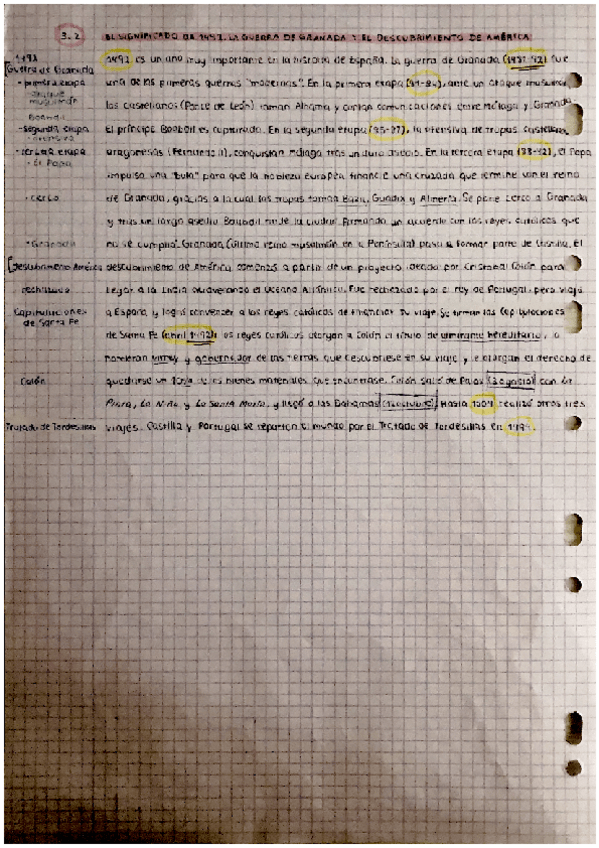 3.2 EL SIGNIFICADO DE 1492. LA GUERRA DE GRANADA Y EL DESCUBRIMIENTO DE AMÉRICA
1492
1492 es un año muy importante en la historia de España. La guerra de Granada (1481-92) fue
Guerra de Granada
- primera etapa
una de las primeras guerras "modernas". En la primera etapa (81-84), ante un ataque musulmán,
ataque musulmán
los castellanos (Ponce de León) toman Alhama y cortan comunicaciones entre Málaga y Granada.
Boabdil
- segunda etapa
El príncipe Boabdil es capturado. En la segunda etapa (85-87), la ofensiva de tropas castellano
ofensiva
- tercera etapa
aragonesas (Fernando II), conquistan Málaga tras un duro asedio. En la tercera etapa (88-92), el Papa
- El Papa
impulsa una "bula" para que la nobleza europea financie una cruzada que termine con el reino
- cerco
de Granada, gracias a la cual las tropas toman Baza, Guadix y Almería. Se pone cerco a Granada
y tras un largo asedio Boabdil rinde la ciudad, firmando un acuerdo con los reyes católicos que
- Granada
no se cumplirá. Granada (último reino musulmán en la Península) pasa a formar parte de Castilla. El
Descubrimiento América
descubrimiento de América comenzó a partir de un proyecto ideado por Cristóbal Colón para
rechazado
llegar a la India atravesando el Océano Atlántico. Fue rechazado por el rey de Portugal, pero viajó
Capitulaciones de Santa Fe
a España, y logró convencer a los reyes católicos de financiar su viaje. Se firman las Capitulaciones
de Santa Fe (abril 1492): los reyes católicos otorgan a Colón el título de almirante hereditario, lo
nombran virrey y gobernador de las tierras que descubriese en su viaje y le otorgan el derecho de
Colón
quedarse un 10% de los bienes materiales que encontrase. Colón salió de Palos (3 agosto) con La
Pinta, La Niña y La Santa María, y llegó a las Bahamas (12 octubre). Hasta 1504 realizó otros tres
Tratado de Tordesillas
viajes. Castilla y Portugal se reparten el mundo por el Tratado de Tordesillas en 1494.